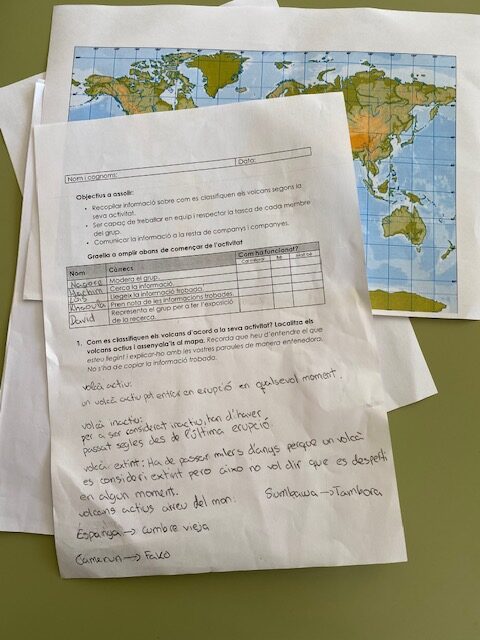 Nom i cognoms:
Data:
Objectius a assolir:
• Recopilar informació sobre com es classifiquen els volcans segons la
seva activitat.
• Ser capaç de treballar en equip i respectar la tasca de cada membre
del grup.
• Comunicar la informació a la resta de companys i companyes.
Graella a omplir abans de començar de l'activitat
Nom
Càrrecs
Com ha funcionat?
Cal millorar
Bé
Molt bé
Modera el grup.
Cerca la informació.
Llegeix la informació trobada.
Pren nota de les informacions trobades.
David
Representa el grup per a fer l'exposició
de la recerca.
1. Com es classifiquen els volcans d'acord a la seva activitat? Localitza els
volcans actius i assenyala'ls al mapa. Recorda que heu d'entendre el que
esteu llegint i explicar-ho amb les vostres paraules de manera entenedora.
No s'ha de copiar la informació trobada.
volcà actiu:
un volcà actiu pot entrar en erupció en qualsevol moment.
volcà inactiu:
per a ser considerat inactiu, han d'haver
passat segles des de l'última erupció.
volcà extint: Ha de passar milers d'anys perque un volcà
es consideri extint pero aixo no vol dir que es desperti
en algun moment.
volcans actius atreu del mon:
Sumbawa → Tambora
Espanya → cumbre vieja
Camerun → Fako